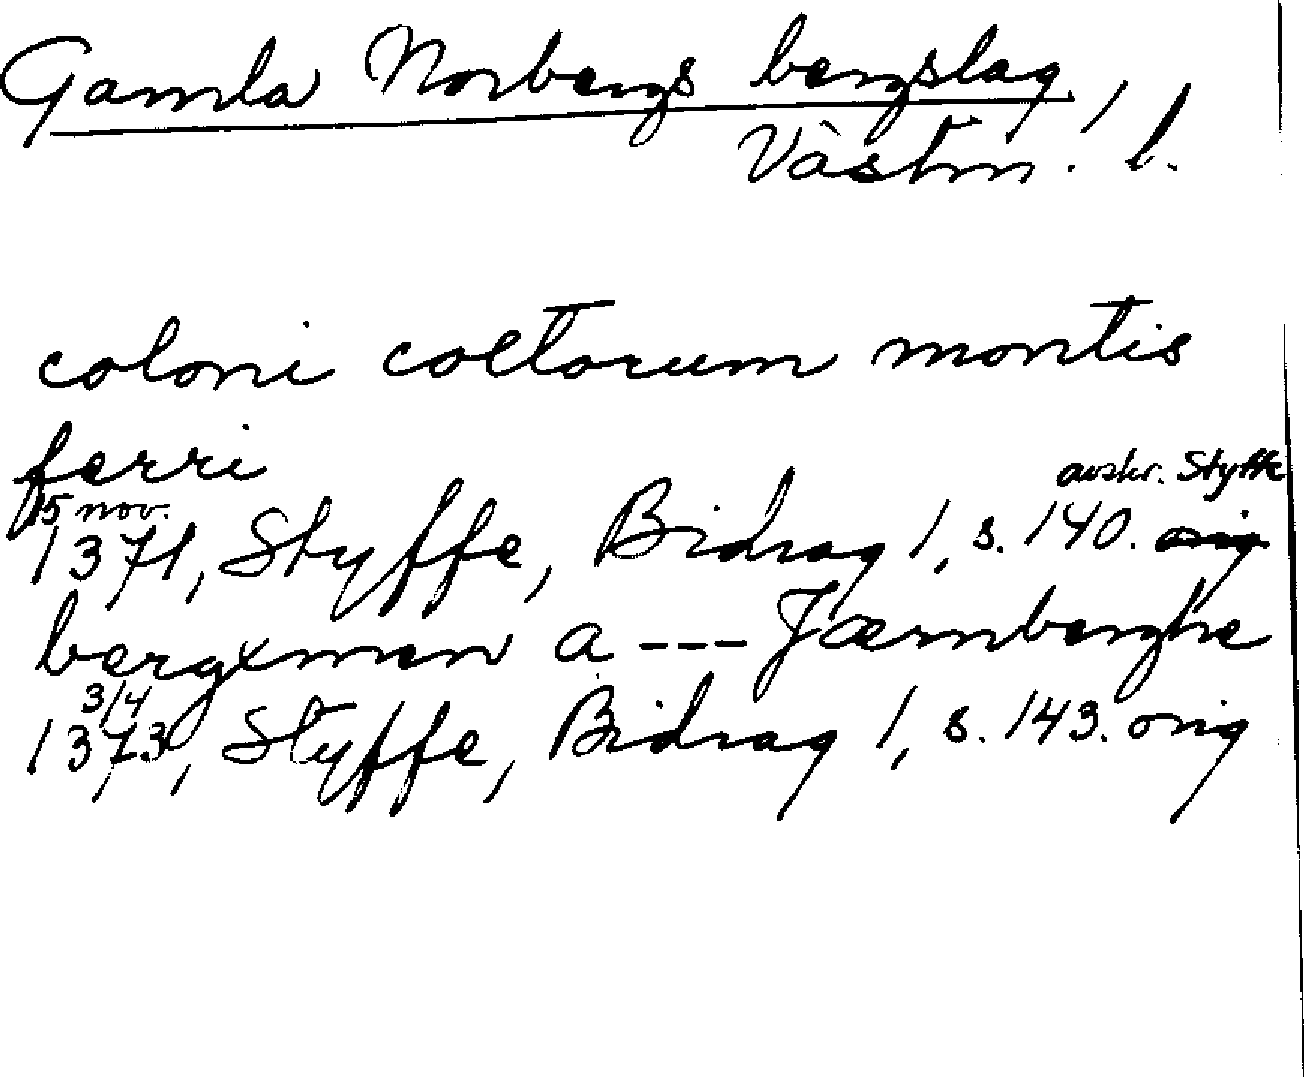 Gamla Norbergs bergslag,
Västm. l.
coloni coltorum montis
ferri
avskr. Styffe
15 nov.
1371, Styffe, Bidrag 1, s. 140. orig
bergxmen a --- Jærnberghe
3/4
1373, Styffe, Bidrag 1, s. 143. orig